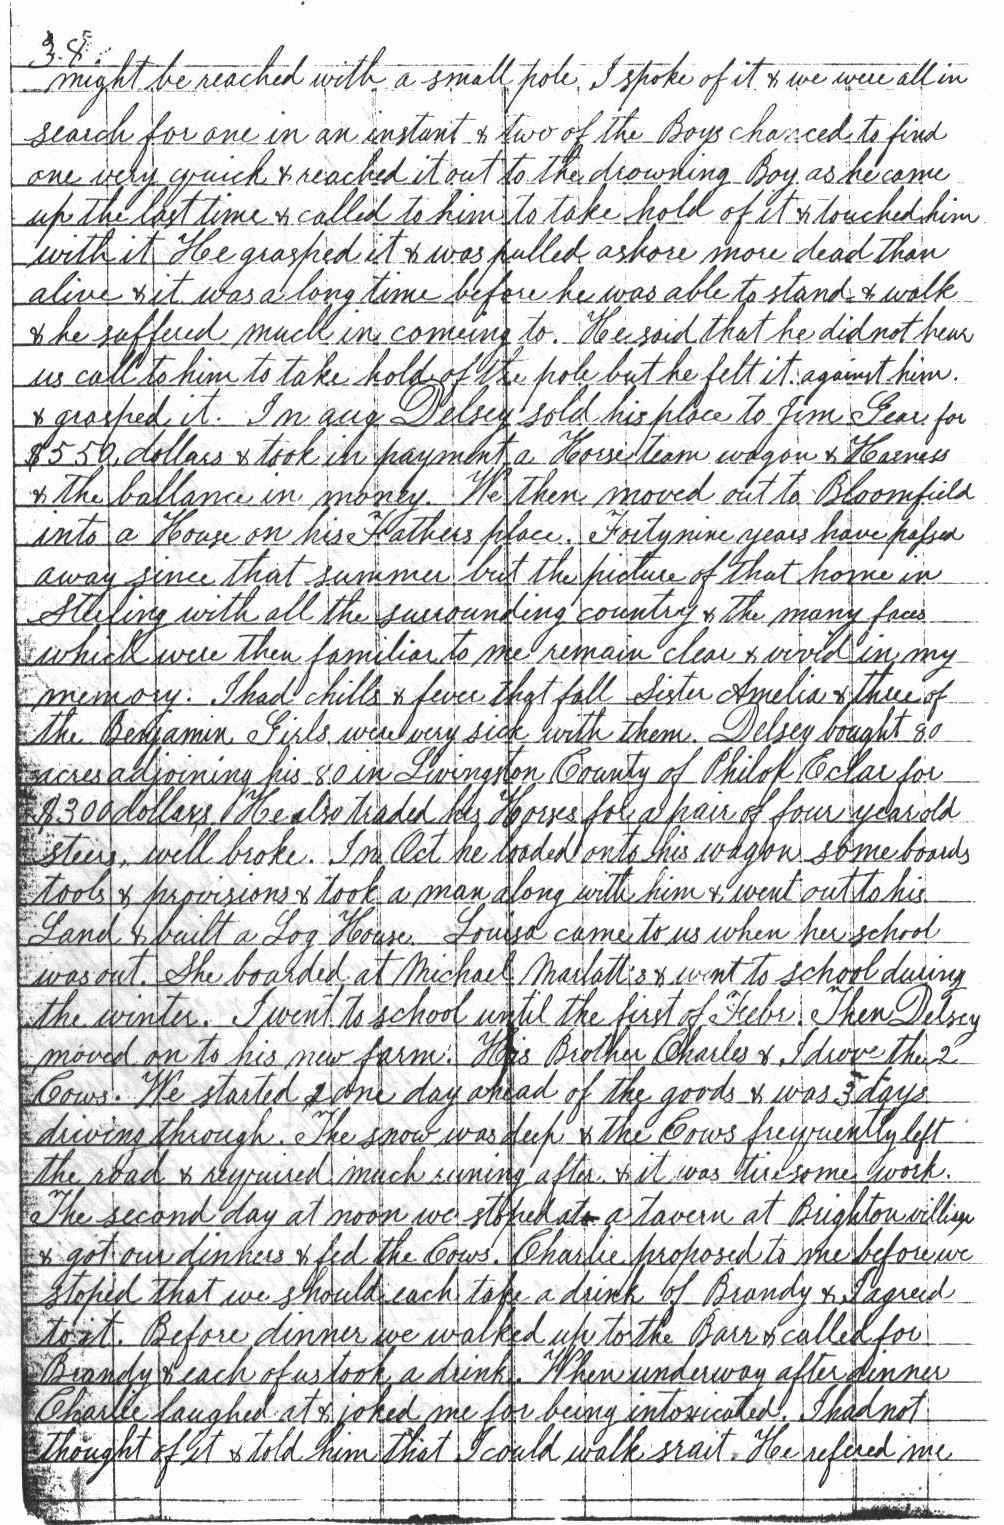 38.
might be reached with a small pole. I spoke of it & we were all in
search for one in an instant & two of the Boys chanced to find
one very quick & reached it out to the drowning Boy as he came
up the last time & called to him to take hold of it & touched him
with it He grasped it & was pulled ashore more dead than
alive & it was a long time before he was able to stand & walk
& he suffered much in comeing to. He said that he did not hear
us call to him to take hold of the pole but he felt it against him.
& grasped it. In aug Delsey sold his place to Jim Gear for
$550 dollars & took in payment a Horse team wagon & Harness
& the ballance in money. We then moved out to Bloomfield
into a House on his Fathers place. Forty nine years have passed
away since that summer but the picture of that home in
Sterling with all the surrounding country & the many faces
which were then familiar to me remain clear & vivid in my
memory. I had chills & fever that fall Sister Amelia & three of
the Benjamin Girls were very sick with them. Delsey bought 80
acres adjoining his 80 in Livingston County of Philok Eclar for
$300 dollars He also traded his Horses for a pair of four year old
steers, well broke. In Oct he loaded onto his wagon some boards
tools & provisions & took a man along with him & went out to his
Land & built a Log House. Louisa came to us when her school
was out. She boarded at Michael Marlatt's & went to school during
the winter. I went to school until the first of Febr. Then Delsey
moved on to his new farm. His Brother Charles & I drove the 2
Cows. We started one day ahead of the goods & was 3 days
driving through. The snow was deep & the Cows frequently left
the road & required much runing after & it was tiresome work.
The second day at noon we stoped at a tavern at Brighton village
& got our dinners & fed the Cows. Charlie proposed to me before we
stoped that we should each take a drink of Brandy & I agreed
to it. Before dinner we walked up to the Barr & called for
Brandy & each of us took a drink. When underway after dinner
Charlie laughed at & joked me for being intoxicated. I had not
thought of it & told him that I could walk srait. He refered me